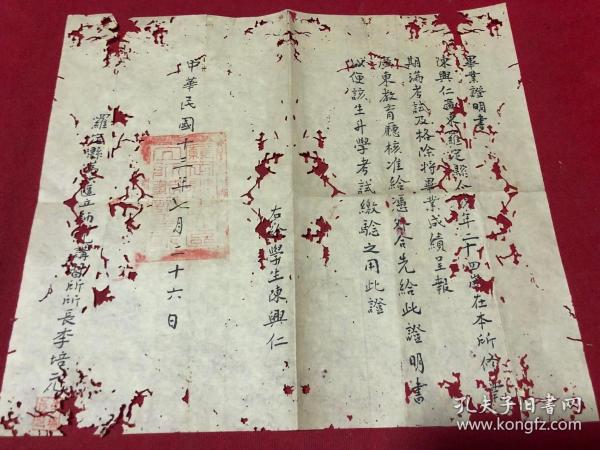 畢業證明書
陳興仁廣東羅定縣人年二十四歲在本所修業
期滿考試及格除將畢業成績呈報
廣東教育廳核准給憑外合先給此證明書
以便該生升學考試繳驗之用此證
右給學生陳興仁
中華民國十年七月二十六日
羅定縣講習所所長李培元
孔夫子旧书网
www.kongfz.com